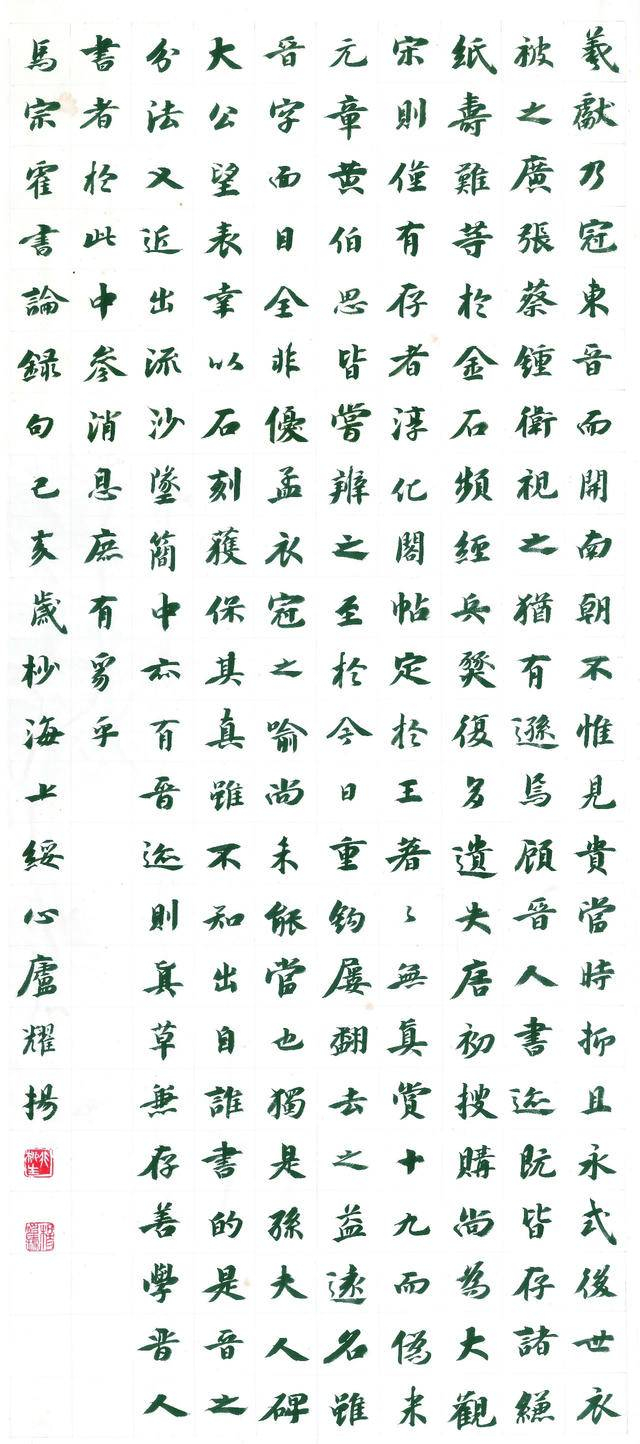 羲獻乃冠東晉而開南朝不惟見貴當時抑且永式後世衣
被之廣張蔡鍾衛視之猶有遜焉顧晉人書迹既皆存諸縑
紙壽難等於金石頻經兵燹復多遺失唐初搜購尚為大觀
宋則僅有存者淳化閣帖定於王著〻無真賞十九而偽米
元章黄伯思皆嘗辨之至於今日重鉤屢翻去之益遠名雖
晉字而目全非優孟衣冠之喻尚未能當也獨是孫夫人碑
大公望表幸以石刻獲保其真雖不知出自誰書的是晉之
分法又近出流沙墜簡中亦有晉迹則真草兼存善學晋人
書者於此中參消息庶有豸乎
馬宗霍書論錄句己亥歲杪海上綏心廬耀揚